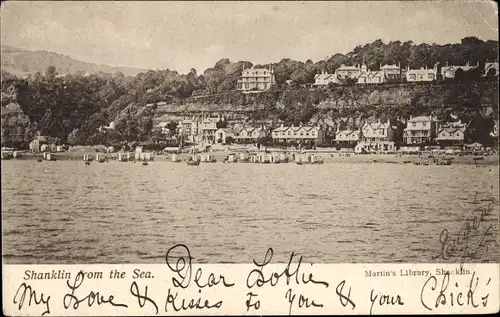 Shanklin from the Sea.
Martin's Library, Shanklin.
Dear Lottie
My Love & Kisses to you & your Chick's